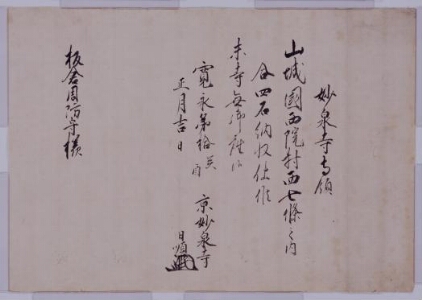 妙泉寺寺領
山城國西院村西七條之内
合四石納収仕候
未寺無御座候
寛永第拾癸酉
正月吉日
京妙泉寺
日
板倉周防守様